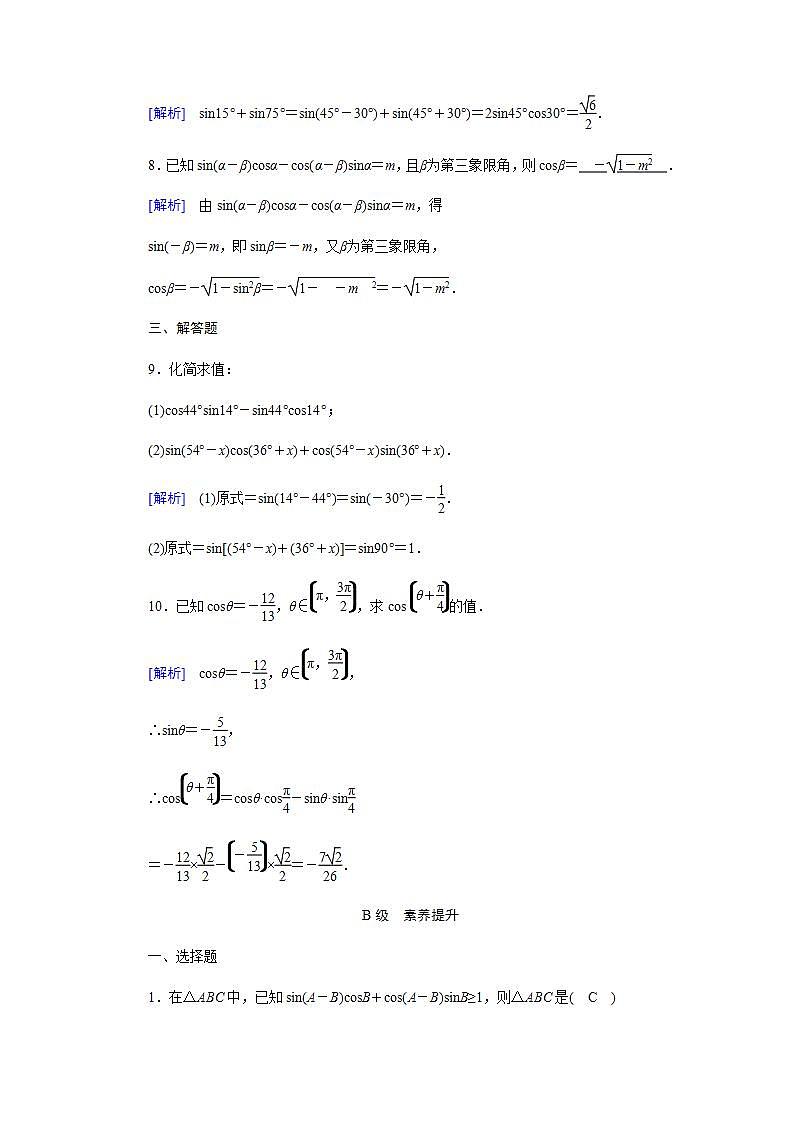 [解析] sin15°+sin75°=sin(45°-30°)+sin(45°+30°)=2sin45°cos30°=√6/2.
8.已知 sin(α-β)cosα-cos(α-β)sinα=m,且β为第三象限角,则 cosβ=__-√(1-m²)__.
[解析] 由 sin(α-β)cosα-cos(α-β)sinα=m,得
sin(-β)=m,即 sinβ=-m,又β为第三象限角,
cosβ=-√(1-sin²β)=-√(1- -m ²)=-√(1-m²).
三、解答题
9.化简求值:
(1)cos44°sin14°-sin44°cos14°;
(2)sin(54°-x)cos(36°+x)+cos(54°-x)sin(36°+x).
[解析] (1)原式=sin(14°-44°)=sin(-30°)=-1/2.
(2)原式=sin[(54°-x)+(36°+x)]=sin90°=1.
10.已知 cosθ=-12/13,θ∈(π,3π/2),求 cos(θ+π/4)的值.
[解析] cosθ=-12/13,θ∈(π,3π/2),
∴sinθ=-5/13,
∴cos(θ+π/4)=cosθ·cosπ/4-sinθ·sinπ/4
=-12/13×√2/2-(-5/13)×√2/2=-7√2/26.
B 级 素养提升
一、选择题
1.在△ABC 中,已知 sin(A-B)cosB+cos(A-B)sinB≥1,则△ABC 是( C )